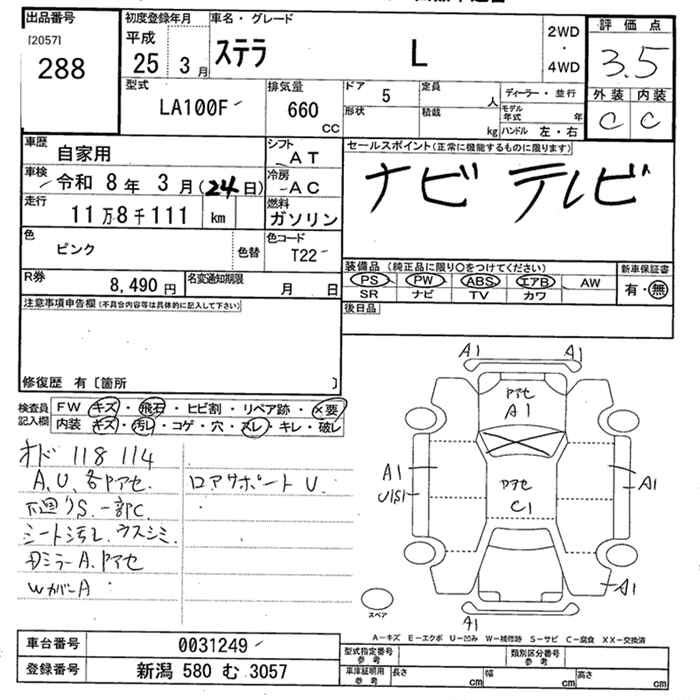 出品番号
[2057]
288
初度登録年月
平成
25 3月
車名・グレード
ステラ L
2WD
・
4WD
評価点
3.5
外装 内装
C C
型式
LA100F
排気量
660
CC
ドア
5
定員
人
形状
積載
kg
ディーラー・並行
モデル年式 年
ハンドル 左・右
車歴
自家用
シフト
AT
車検
令和 8年 3月(24日)
冷房
AC
走行
11万8千111 km
燃料
ガソリン
色
ピンク
色替
色コード
T22
R券
8,490円
名変通知期限
月 日
セールスポイント(正常に機能するものに限ります)
ナビ テレビ
装備品(純正品に限り〇をつけてください)
PS PW ABS エアB AW
SR ナビ TV カワ
新車保証書
有・無
後日品
注意事項申告欄(不具合内容等は具体的に記入して下さい)
修復歴 有〔箇所 〕
検査員記入欄
FW キズ・飛石・ヒビ割・リペア跡・×要
内装 キズ・汚レ・コゲ・穴・スレ・キレ・破レ
オド 118 114
A、U、各アセ
下廻りS、一部C
シート汚レ、ウスシミ
Dミラー A、アセ
WカバーA
ロアサポート U、
A1 A1
アセ
A1
A1
U1S1
アセ
C1
A1
A1
A1
スペア
A−キズ E−エクボ U−凹み W−補修跡 S−サビ C−腐食 XX−交換済
車台番号 0031249
登録番号 新潟 580 む 3057
型式指定番号
参考
類別区分番号
参考
車庫証明用
参考
長さ cm
幅 cm
高さ cm